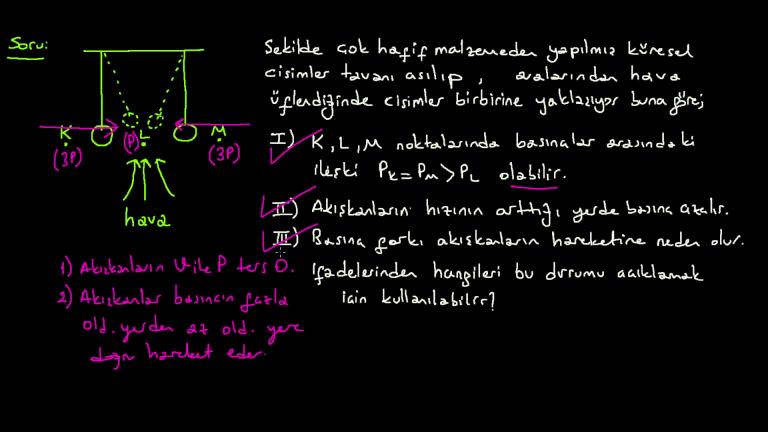 Soru:
Şekilde çok hafif malzemeden yapılmış küresel
cisimler tavana asılıp, aralarından hava
üflendiğinde cisimler birbirine yaklaşıyor buna göre;
K
(3P)
(P) L
M
(3P)
hava
I) K, L, M noktalarında basınçlar arasındaki
ilişki PK = PM > PL olabilir.
II) Akışkanların hızının arttığı yerde basınç azalır.
III) Basınç farkı akışkanların hareketine neden olur.
İfadelerinden hangileri bu durumu açıklamak
için kullanılabilir?
1) Akışkanların V ile P ters O.
2) Akışkanlar basıncın fazla
old. yerden az old. yere
doğru hareket eder.